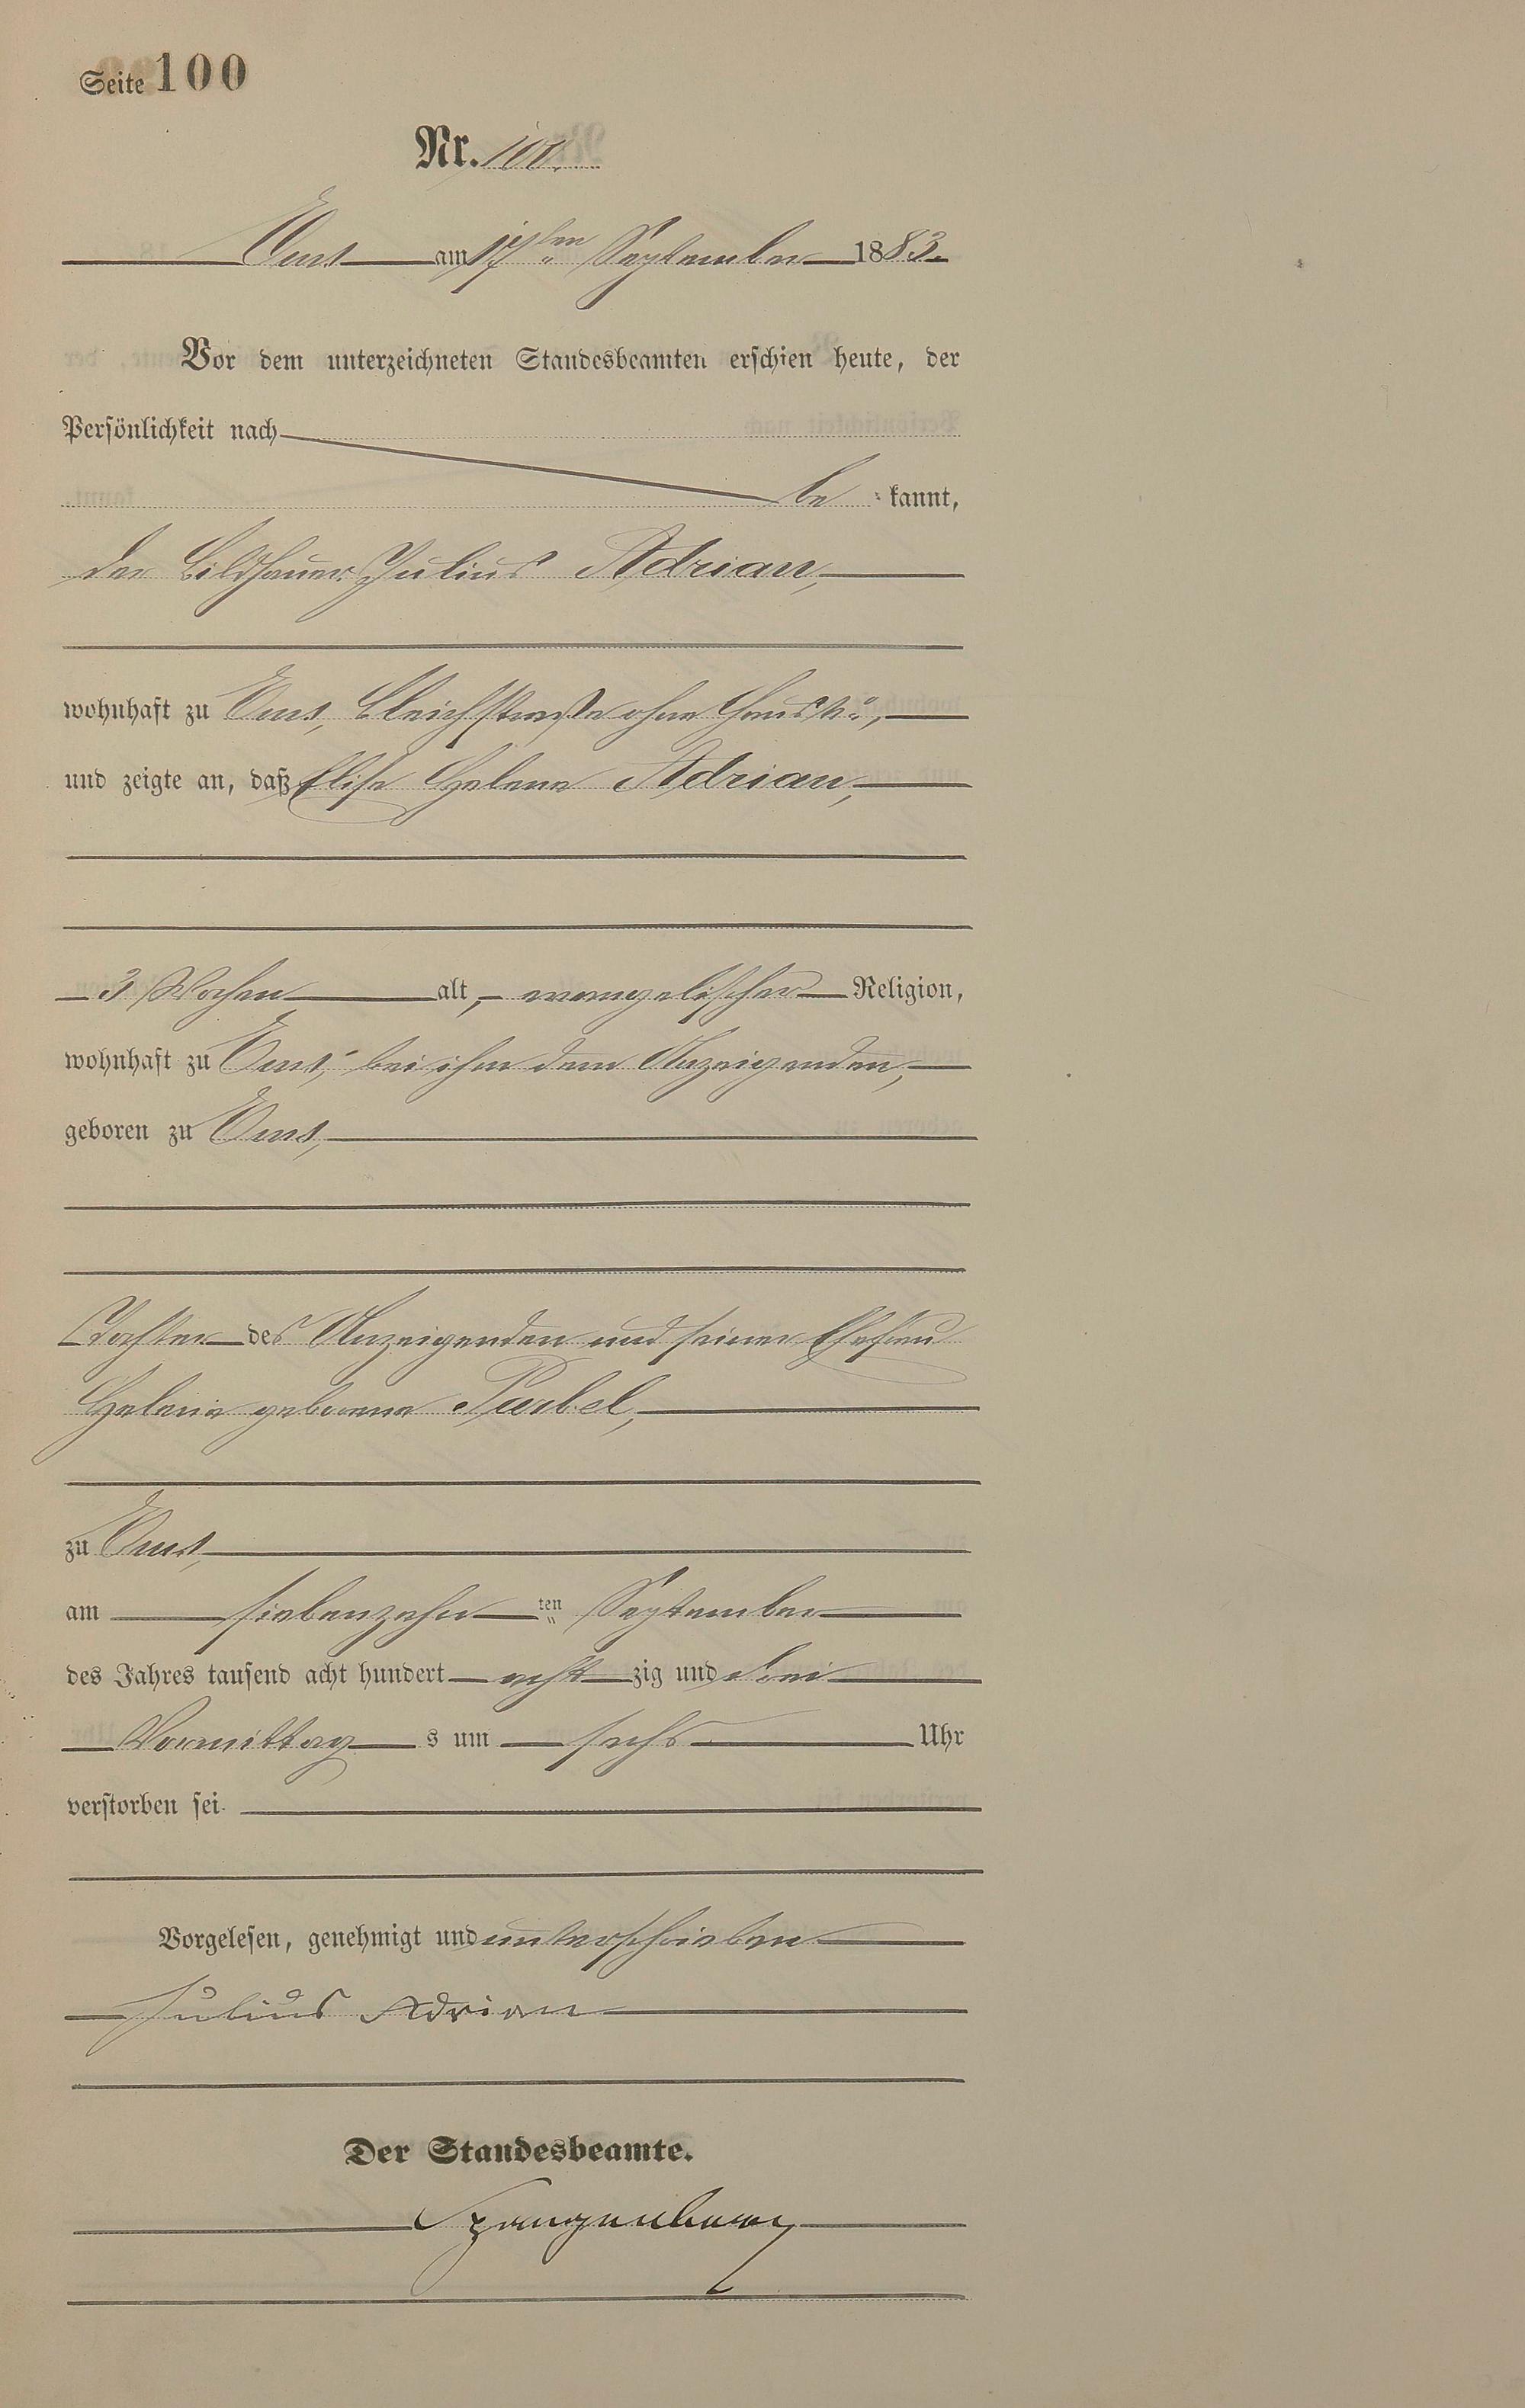 Seite 100
Nr. 100.
Ems am 17ten September 1883.
Vor dem unterzeichneten Standesbeamten erschien heute, der
Persönlichkeit nach
be kannt,
der Bildhauer Julius Adrian,
wohnhaft zu Ems, Bleichstraße ohne Haus No,
und zeigte an, daß Elise Helene Adrian,
3 Wochen alt, evangelischer Religion,
wohnhaft zu Ems, bei ihm dem Anzeigenden,
geboren zu Ems,
Tochter des Anzeigenden und seiner Ehefrau
Helene geborene Purbel,
zu Ems,
am siebenzehn ten September
des Jahres tausend acht hundert acht zig und drei
Vormittag s um sechs Uhr
verstorben sei.
Vorgelesen, genehmigt und unterschrieben
Julius Adrian
Der Standesbeamte.
Spangenberg